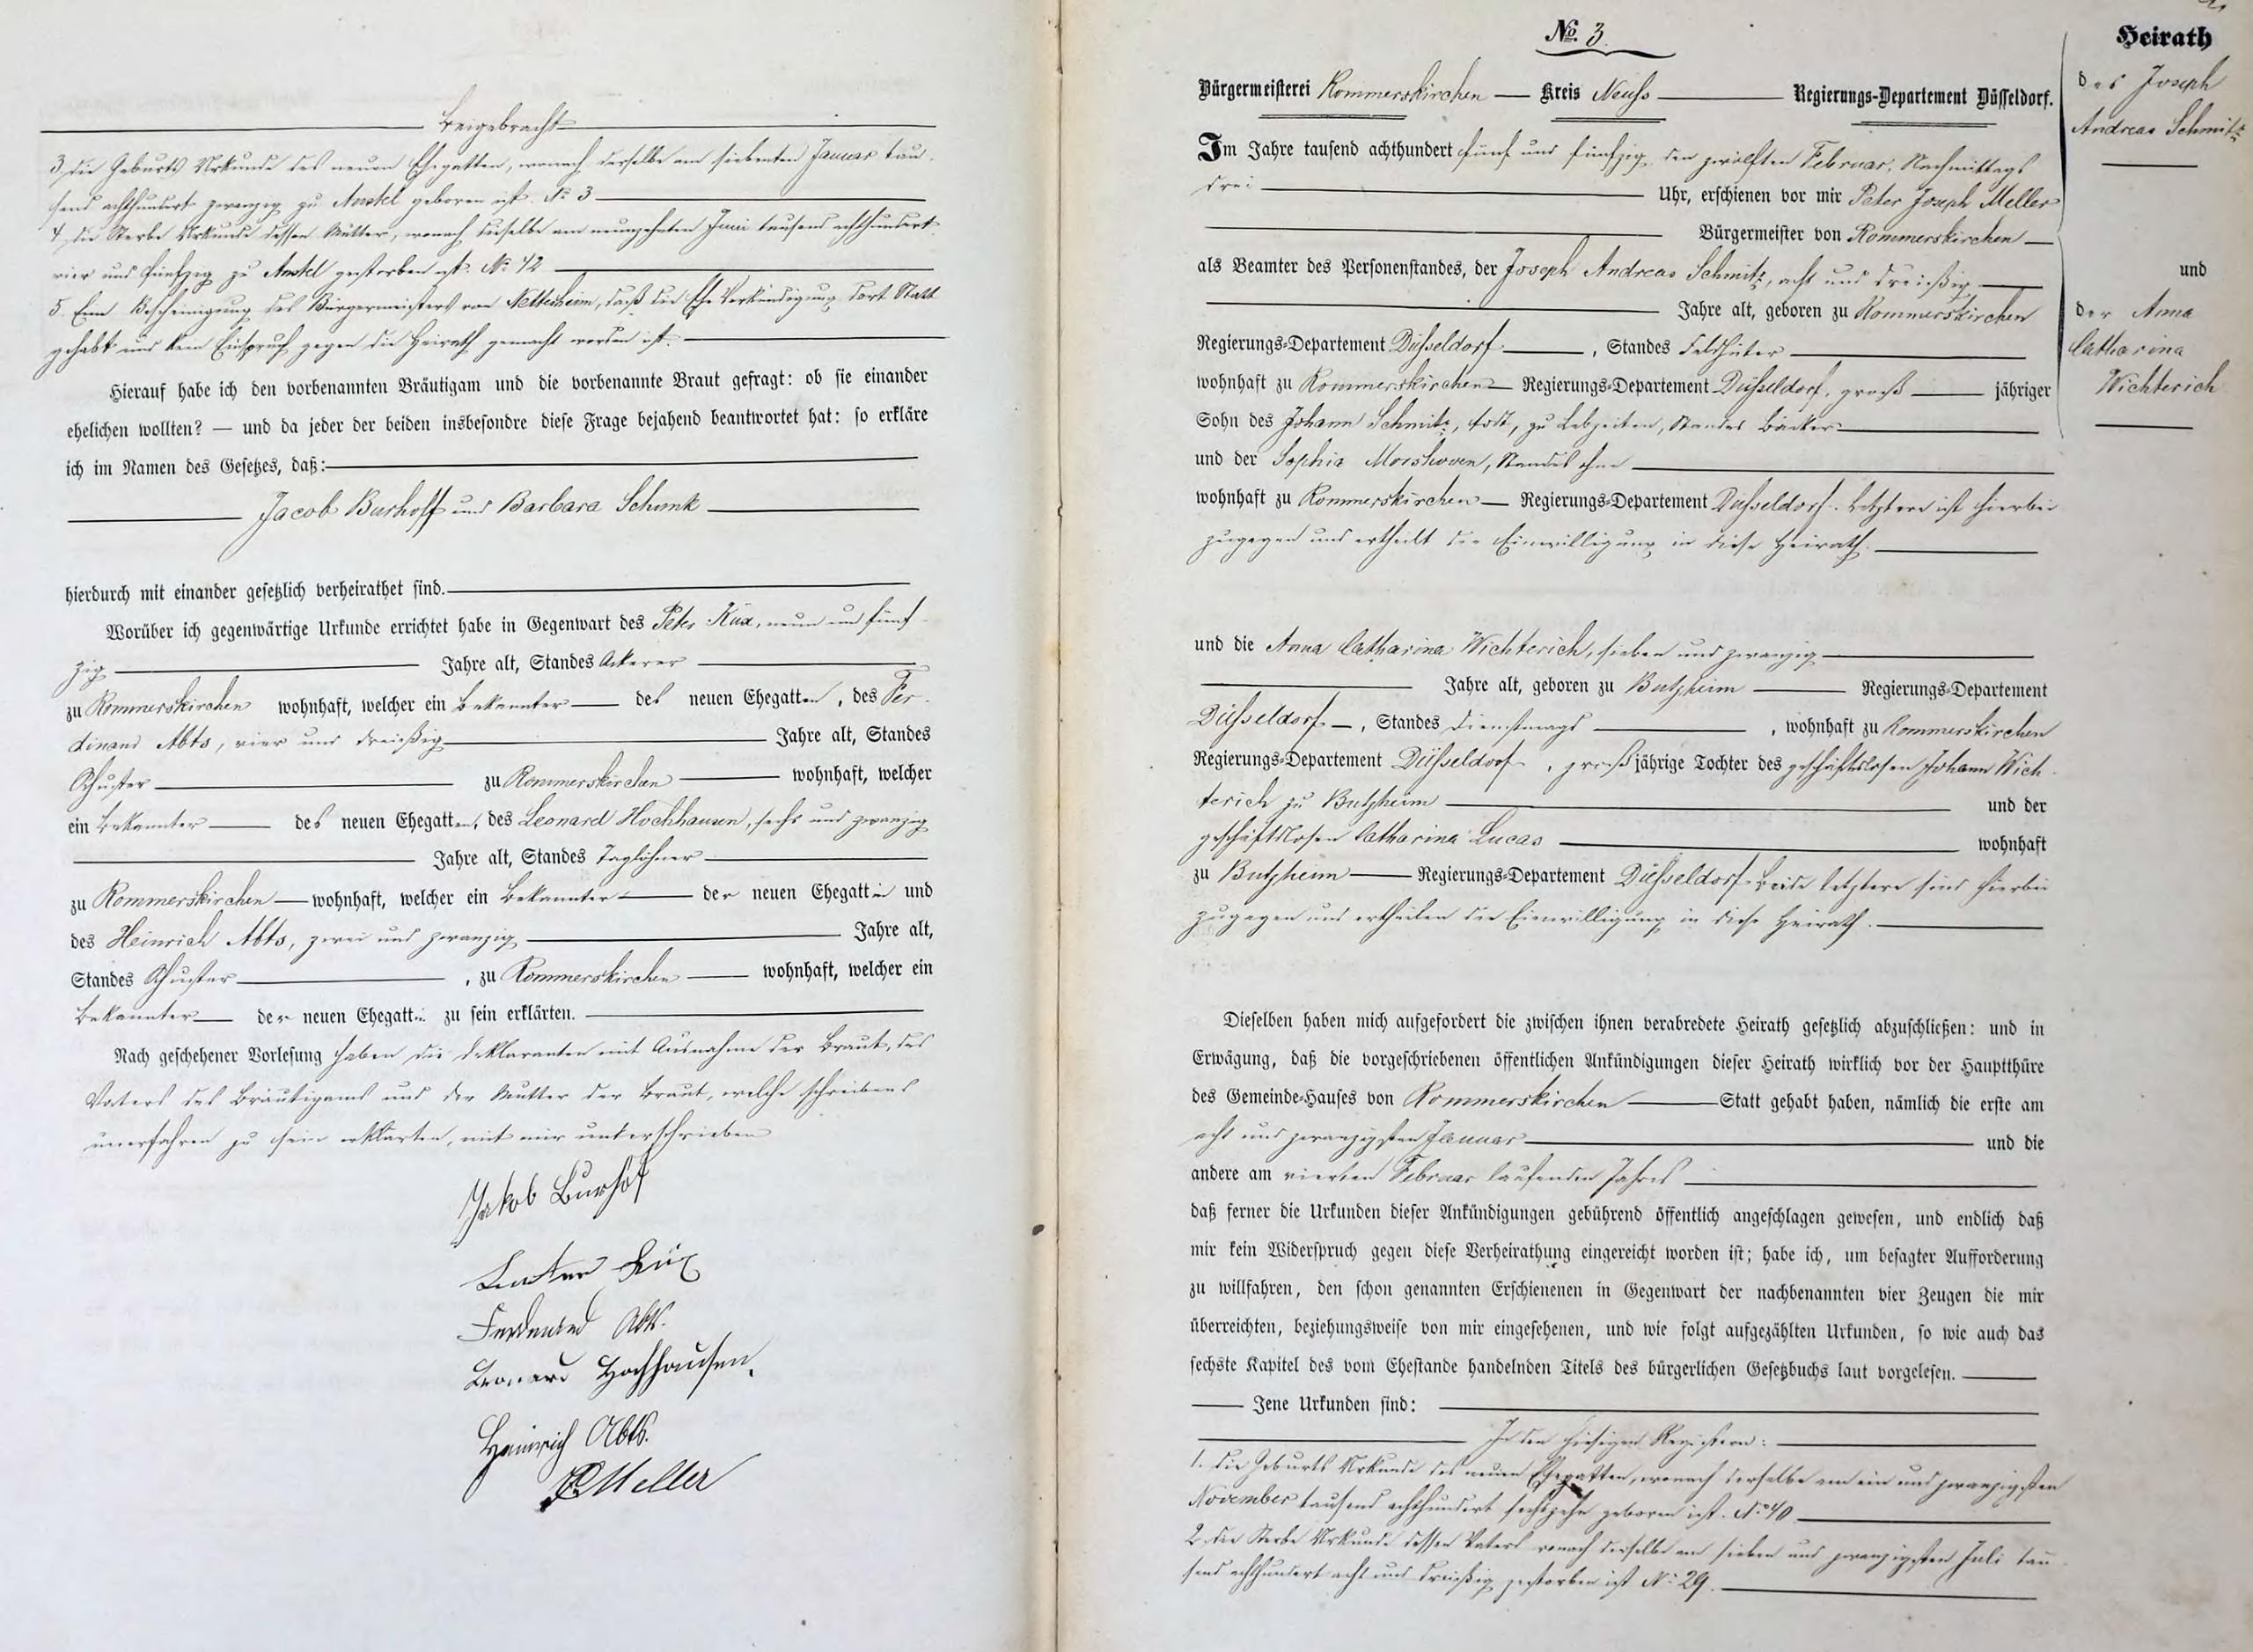 Beigebracht
3, die Geburts Urkunde des neuen Ehegatten, wonach derselbe am siebenten Januar tau-
send achthundert zwanzig zu Anstel geboren ist. No 3
4, die Sterbe Urkunde dessen Mutter, wonach dieselbe am neunzehnten Juni tausend achthundert
vier und fünfzig zu Anstel gestorben ist. No 42
5. Eine Bescheinigung des Bürgermeisters von Nettesheim, daß die Ehe Verkündigung dort Statt
gehabt und kein Einspruch gegen die Heirath gemacht worden ist.
Hierauf habe ich den vorbenannten Bräutigam und die vorbenannte Braut gefragt: ob sie einander
ehelichen wollten? — und da jeder der beiden insbesondre diese Frage bejahend beantwortet hat: so erkläre
ich im Namen des Gesetzes, daß:
Jacob Burhoff und Barbara Schunk
hierdurch mit einander gesetzlich verheirathet sind.
Worüber ich gegenwärtige Urkunde errichtet habe in Gegenwart des Peter Küx, neun und fünf-
zig Jahre alt, Standes Ackerer
zu Rommerskirchen wohnhaft, welcher ein Bekannter des neuen Ehegatten, des Fer-
dinand Abts, vier und dreißig Jahre alt, Standes
Schuster zu Rommerskirchen wohnhaft, welcher
ein Bekannter des neuen Ehegatten, des Leonard Hochhausen, sechs und zwanzig
Jahre alt, Standes Taglöhner
zu Rommerskirchen wohnhaft, welcher ein Bekannter der neuen Ehegattin und
des Heinrich Abts, zwei und zwanzig Jahre alt,
Standes Schuster, zu Rommerskirchen wohnhaft, welcher ein
Bekannter der neuen Ehegattin zu sein erklärten.
Nach geschehener Vorlesung haben die Deklaranten mit Ausnahme der Braut, des
Vaters des Bräutigams und der Mutter der Braut, welche schreibens
unerfahren zu sein erklärten, mit mir unterschrieben
Jakob Burhof
Küx
Ferdenand Abts.
Leonard Hochhausen.
Heinrich Abts.
Meller
No. 3.
Bürgermeisterei Rommerskirchen — Kreis Neuss Regierungs-Departement Düsseldorf.
Im Jahre tausend achthundert fünf und fünfzig, den zwölften Februar, Nachmittags
drei Uhr, erschienen vor mir Peter Joseph Meller
Bürgermeister von Rommerskirchen
als Beamter des Personenstandes, der Joseph Andreas Schmitz, acht und dreißig
Jahre alt, geboren zu Rommerskirchen
Regierungs-Departement Düsseldorf, Standes Feldhüter
wohnhaft zu Rommerskirchen Regierungs-Departement Düsseldorf, groß jähriger
Sohn des Johann Schmitz, todt, zu Lebzeiten, Standes Bäcker
und der Sophia Morshoven, Standes ohne
wohnhaft zu Rommerskirchen Regierungs-Departement Düsseldorf. Letztere ist hierbei
zugegen und ertheilt die Einwilligung in diese Heirath.
und die Anna Catharina Wichterich, sieben und zwanzig
Jahre alt, geboren zu Butzheim Regierungs-Departement
Düsseldorf, Standes Dienstmagd, wohnhaft zu Rommerskirchen
Regierungs-Departement Düsseldorf, großjährige Tochter des geschäftslosen Johann Wich-
terich zu Butzheim und der
geschäftslosen Catharina Lucas wohnhaft
zu Butzheim Regierungs-Departement Düsseldorf. Beide letztere sind hierbei
zugegen und ertheilen die Einwilligung in diese Heirath.
Dieselben haben mich aufgefordert die zwischen ihnen verabredete Heirath gesetzlich abzuschließen: und in
Erwägung, daß die vorgeschriebenen öffentlichen Ankündigungen dieser Heirath wirklich vor der Hauptthüre
des Gemeinde-Hauses von Rommerskirchen Statt gehabt haben, nämlich die erste am
acht und zwanzigsten Januar und die
andere am vierten Februar laufenden Jahres
daß ferner die Urkunden dieser Ankündigungen gebührend öffentlich angeschlagen gewesen, und endlich daß
mir kein Widerspruch gegen diese Verheirathung eingereicht worden ist; habe ich, um besagter Aufforderung
zu willfahren, den schon genannten Erschienenen in Gegenwart der nachbenannten vier Zeugen die mir
überreichten, beziehungsweise von mir eingesehenen, und wie folgt aufgezählten Urkunden, so wie auch das
sechste Kapitel des vom Ehestande handelnden Titels des bürgerlichen Gesetzbuchs laut vorgelesen.
Jene Urkunden sind:
In den hiesigen Registern:
1. die Geburts Urkunde des neuen Ehegatten, wonach derselbe am ein und zwanzigsten
November tausend achthundert sechszehn geboren ist. No 40
2. die Sterbe Urkunde dessen Vaters wonach derselbe am sieben und zwanzigsten Juli tau-
send achthundert acht und dreißig gestorben ist No 29.
Heirath
des Joseph
Andreas Schmitz
und
der Anna
Catharina
Wichterich